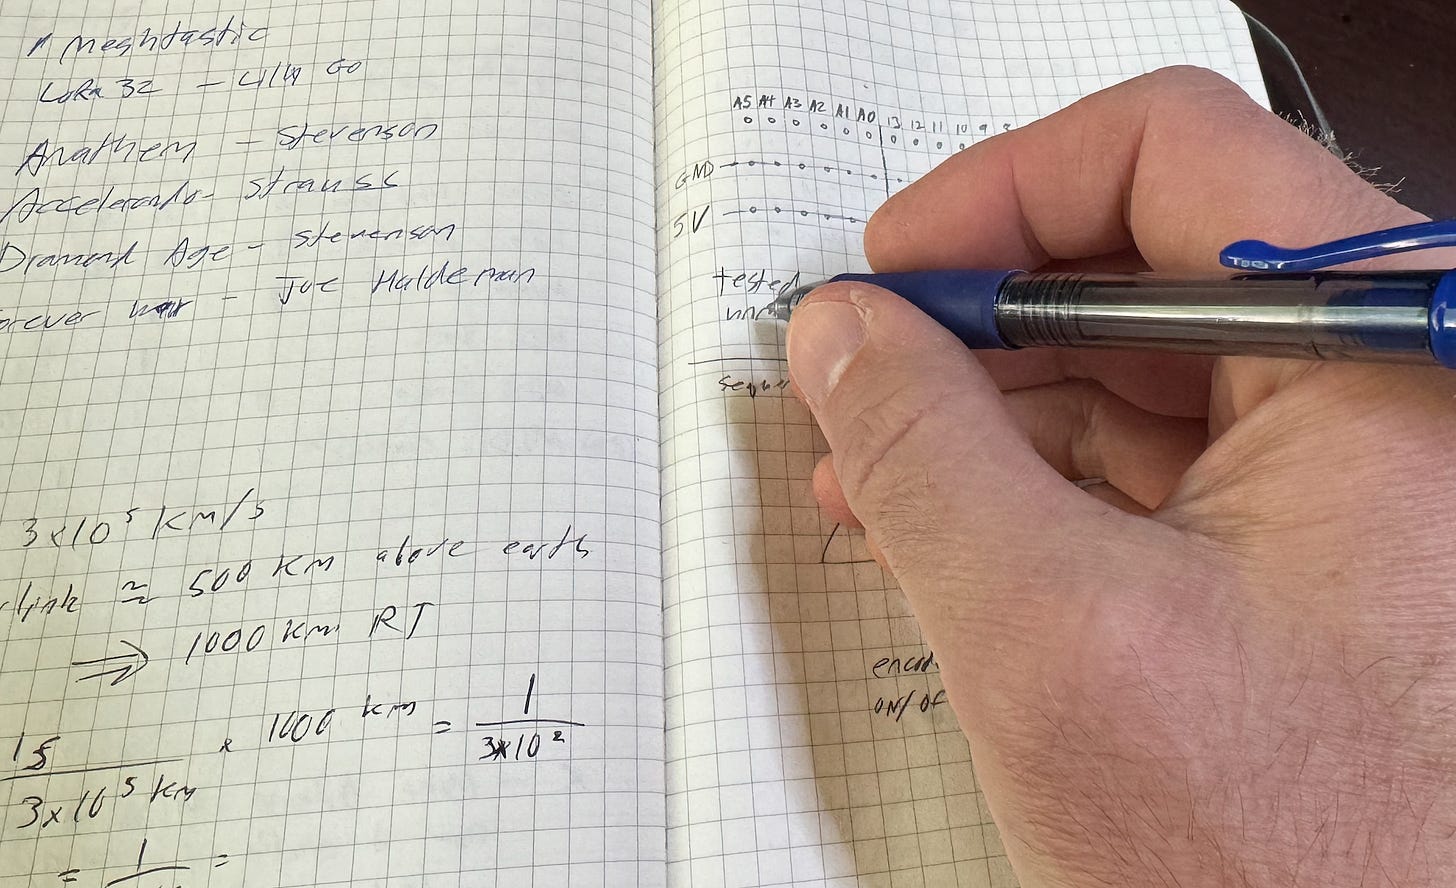 Meshtastic
LoRa 32 - Lily Go
Anathem - Stevenson
Accelerando - Strauss
Diamond Age - Stevenson
orever war - Joe Haldeman
3x10⁵ km/s
link ≈ 500 km above earth
⇒ 1000 km RT
1s / 3x10⁵ km x 1000 km = 1 / 3x10²
= 1 =
A5 A4 A3 A2 A1 A0 13 12 11 10 9 8
GND
5V
tested
encod
ON/OF